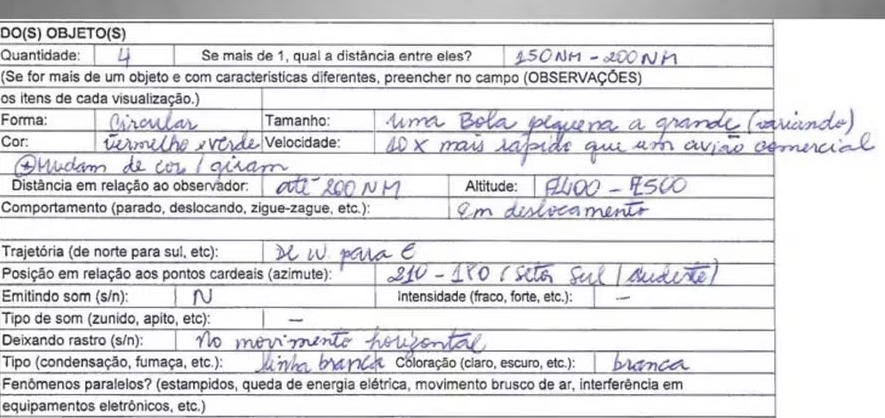 DO(S) OBJETO(S)
Quantidade: 4 Se mais de 1, qual a distância entre eles? 150NM - 200NM
(Se for mais de um objeto e com características diferentes, preencher no campo (OBSERVAÇÕES)
os itens de cada visualização.)
Forma: Circular Tamanho: uma Bola pequena a grande (variando)
Cor: Vermelho e verde Velocidade: 10 X mais rápido que um avião comercial
Mudam de cor / giram
Distância em relação ao observador: até 200 NM Altitude: - 7500
Comportamento (parado, deslocando, zigue-zague, etc.): Em deslocamento
Trajetória (de norte para sul, etc): De W para E
Posição em relação aos pontos cardeais (azimute): 210 - 180 (setor Sul / sudeste)
Emitindo som (s/n): N Intensidade (fraco, forte, etc.): —
Tipo de som (zunido, apito, etc): —
Deixando rastro (s/n): No movimento horizontal
Tipo (condensação, fumaça, etc.): linha branca Coloração (claro, escuro, etc.): branca
Fenômenos paralelos? (estampidos, queda de energia elétrica, movimento brusco de ar, interferência em
equipamentos eletrônicos, etc.)